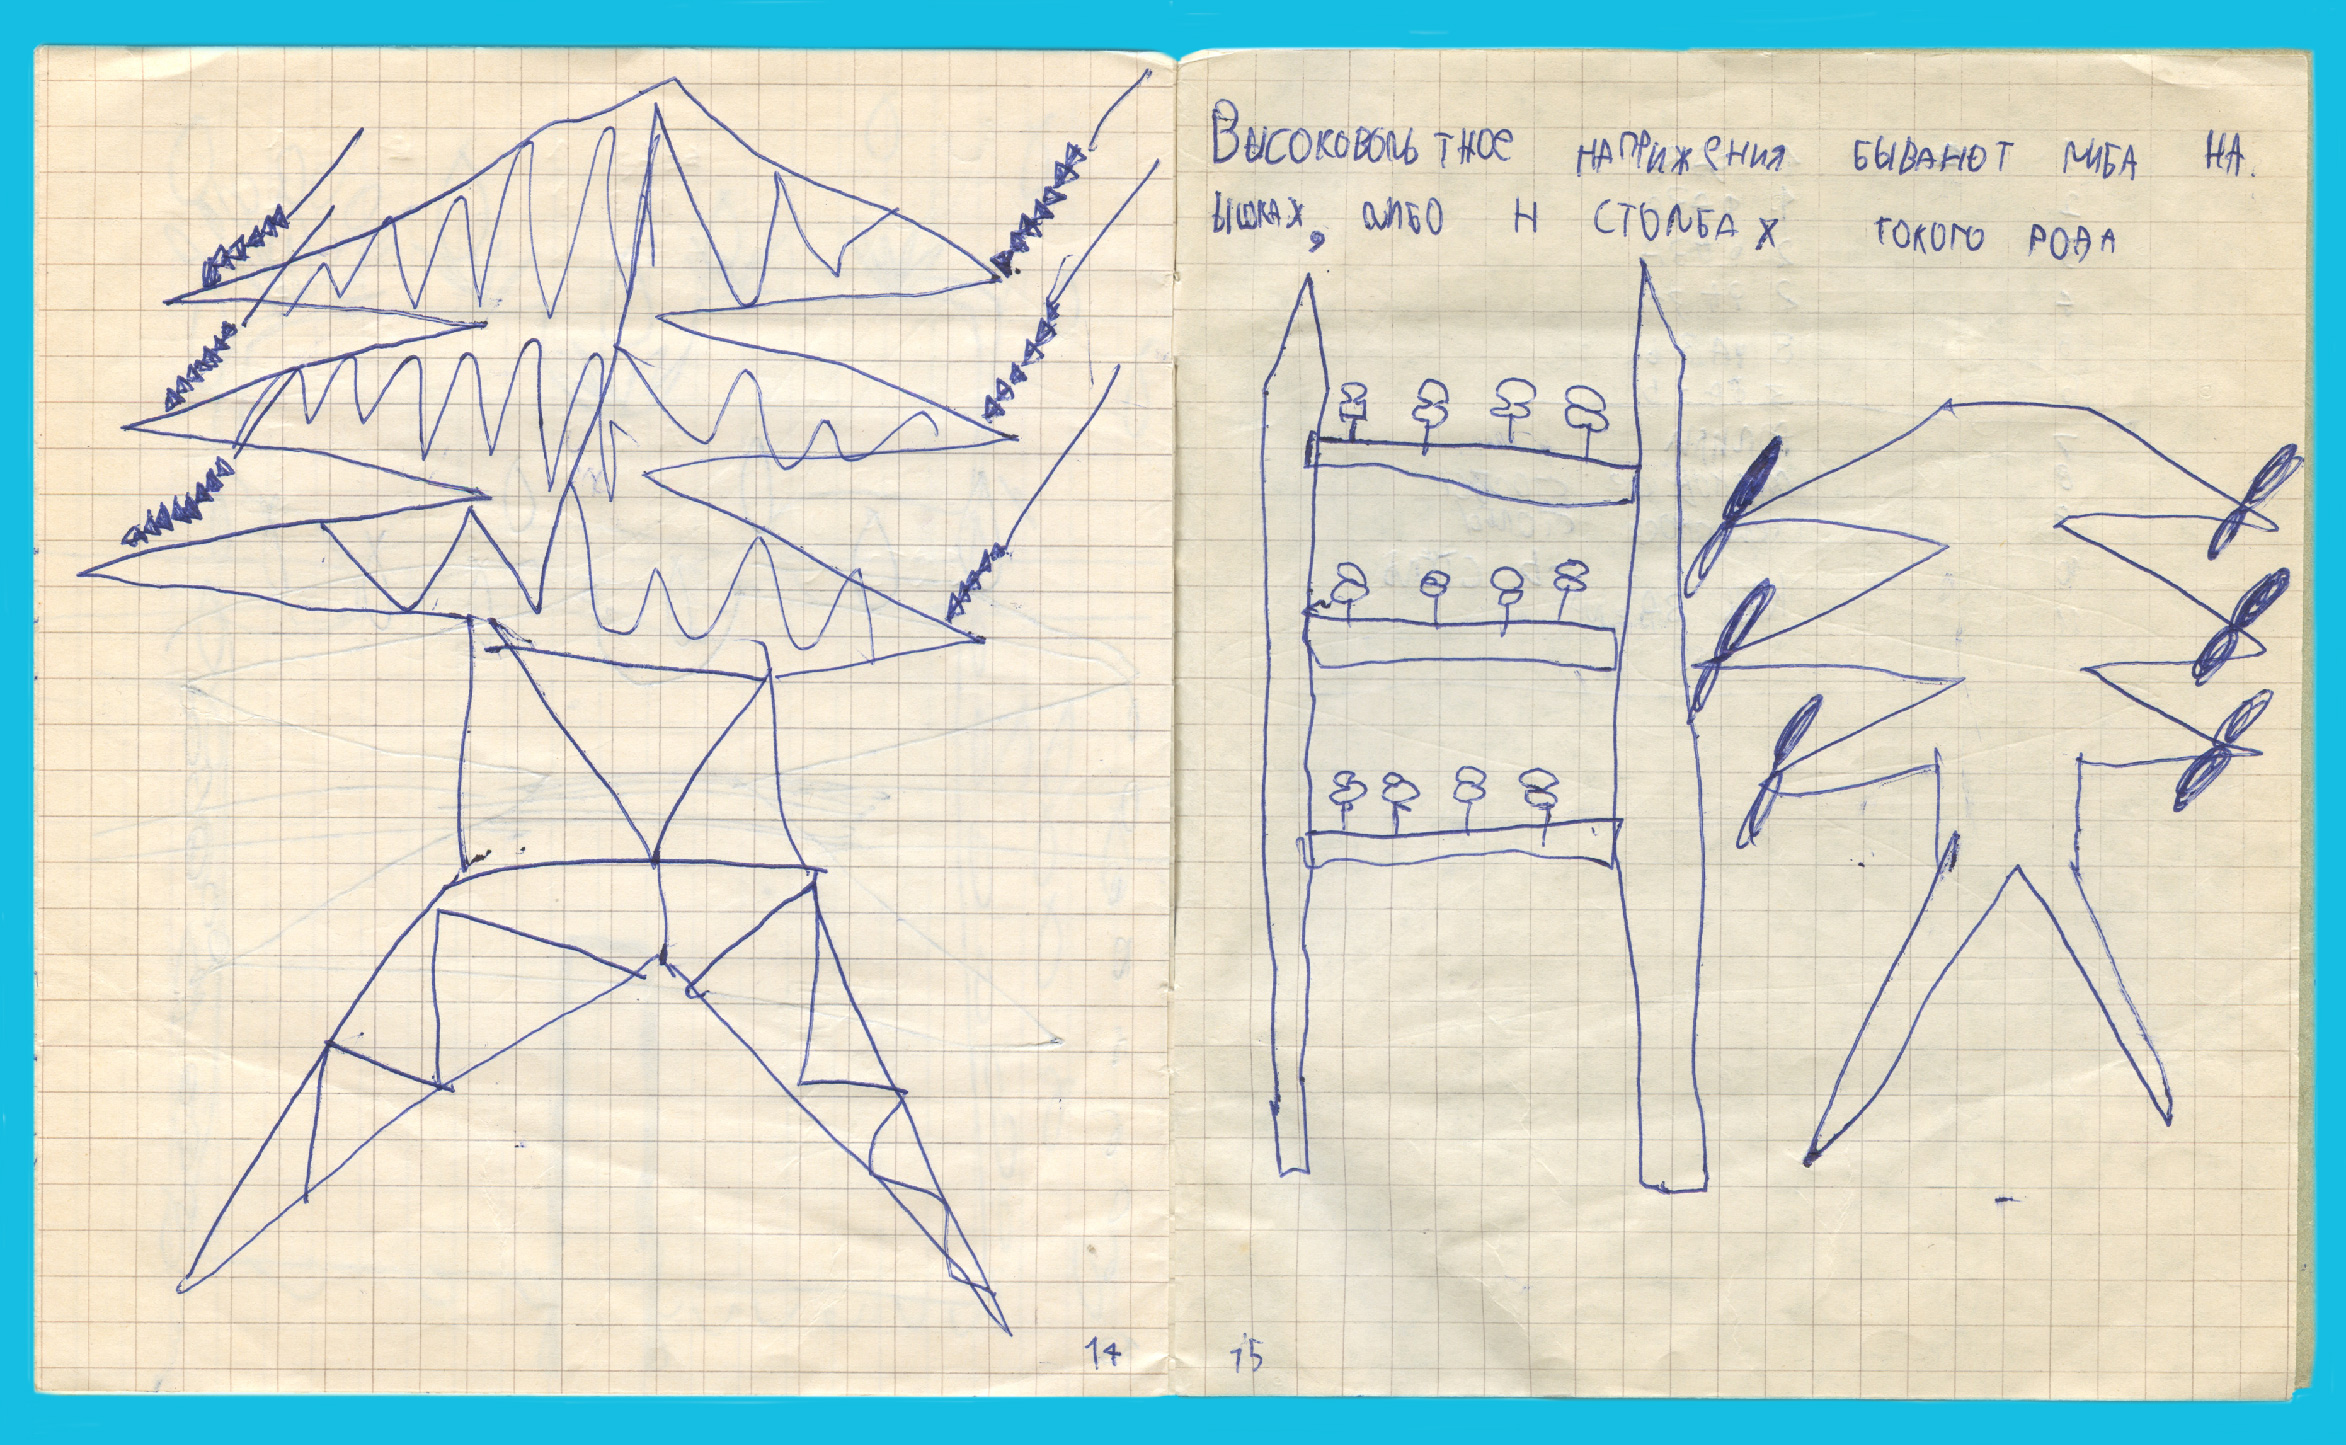 Высоковольтное наприжения бывают либа на
ышках, либо н столбах токого рода
14
15